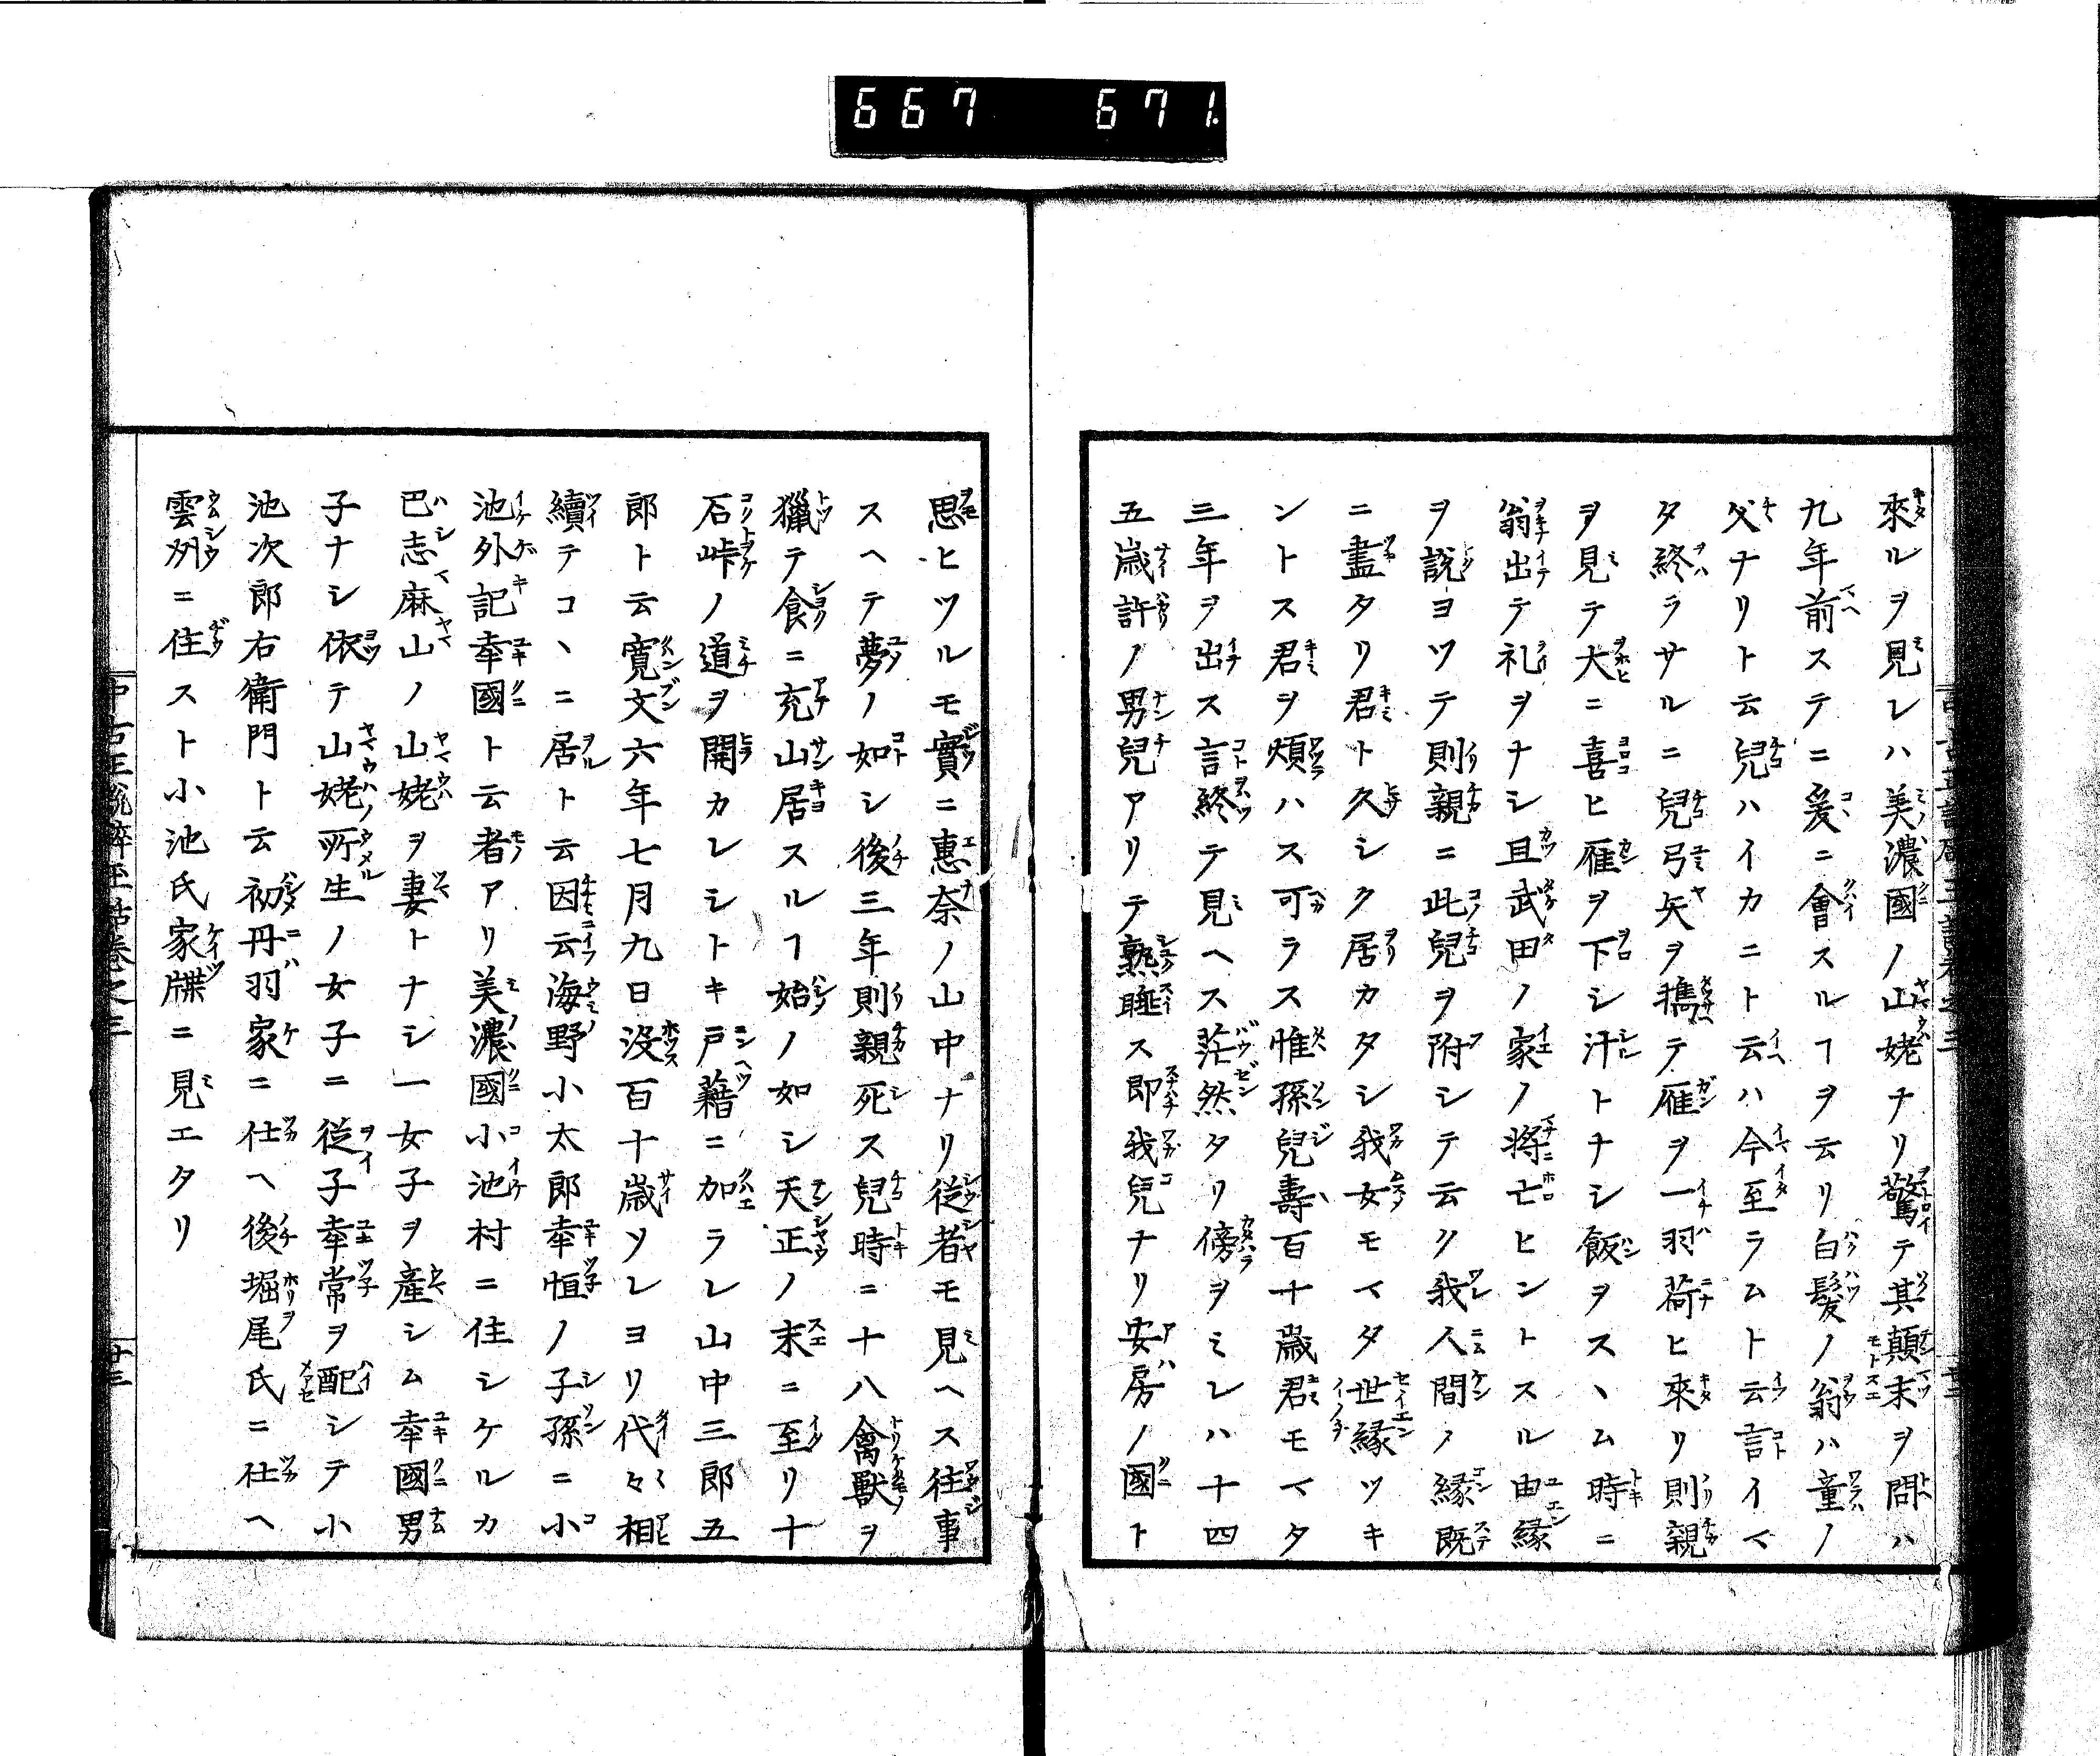 667 671.
來ルヲ見レハ美濃國ノ山姥ナリ驚テ其顛末ヲ問ハ
九年前ステニ爰ニ會スルヿヲ云リ白髮ノ翁ハ童ノ
父ナリト云兒ハイカニト云ハ今至ラムト云言イマ
タ終ラサルニ兒弓矢ヲ携テ雁ヲ一羽荷ヒ來リ則親
ヲ見テ大ニ喜ヒ雁ヲ下シ汁トナシ飯ヲスヽム時ニ
翁出テ礼ヲナシ且武田ノ家ノ將ニ亡ヒントスル由縁
ヲ説ヨツテ則親ニ此兒ヲ附シテ云ク我人間ノ縁既
ニ盡タリ君ト久シク居カタシ我女モイマタ世縁ツキ
ントス君ヲ煩ハス可ラス惟孫兒壽百十歳君モイマタ
三年ヲ出ス言終テ見ヘス茫然タリ傍ヲミレハ十四
五歳許ノ男兒アリテ熟睡ス即我兒ナリ安房ノ國ト
思ヒツルモ實ニ惠奈ノ山中ナリ從者モ見ヘス往事
スヘテ夢ノ如シ後三年則親死ス兒時ニ十八禽獸ヲ
獵テ食ニ充山居スルヿ始ノ如シ天正ノ末ニ至リ十
石峠ノ道ヲ開カレシトキ戸藉ニ加ラレ山中三郎五
郎ト云寛文六年七月九日没百十歳ソレヨリ代々相
續テコヽニ居ト云因云海野小太郎幸恒ノ子孫ニ小
池外記幸國ト云者アリ美濃國小池村ニ住シケルカ
巴志麻山ノ山姥ヲ妻トナシ一女子ヲ產シム幸國男
子ナシ依テ山姥所生ノ女子ニ從子幸常ヲ配シテ小
池次郎右衛門ト云初丹羽家ニ仕ヘ後堀尾氏ニ仕ヘ
雲州ニ住スト小池氏家牒ニ見エタリ